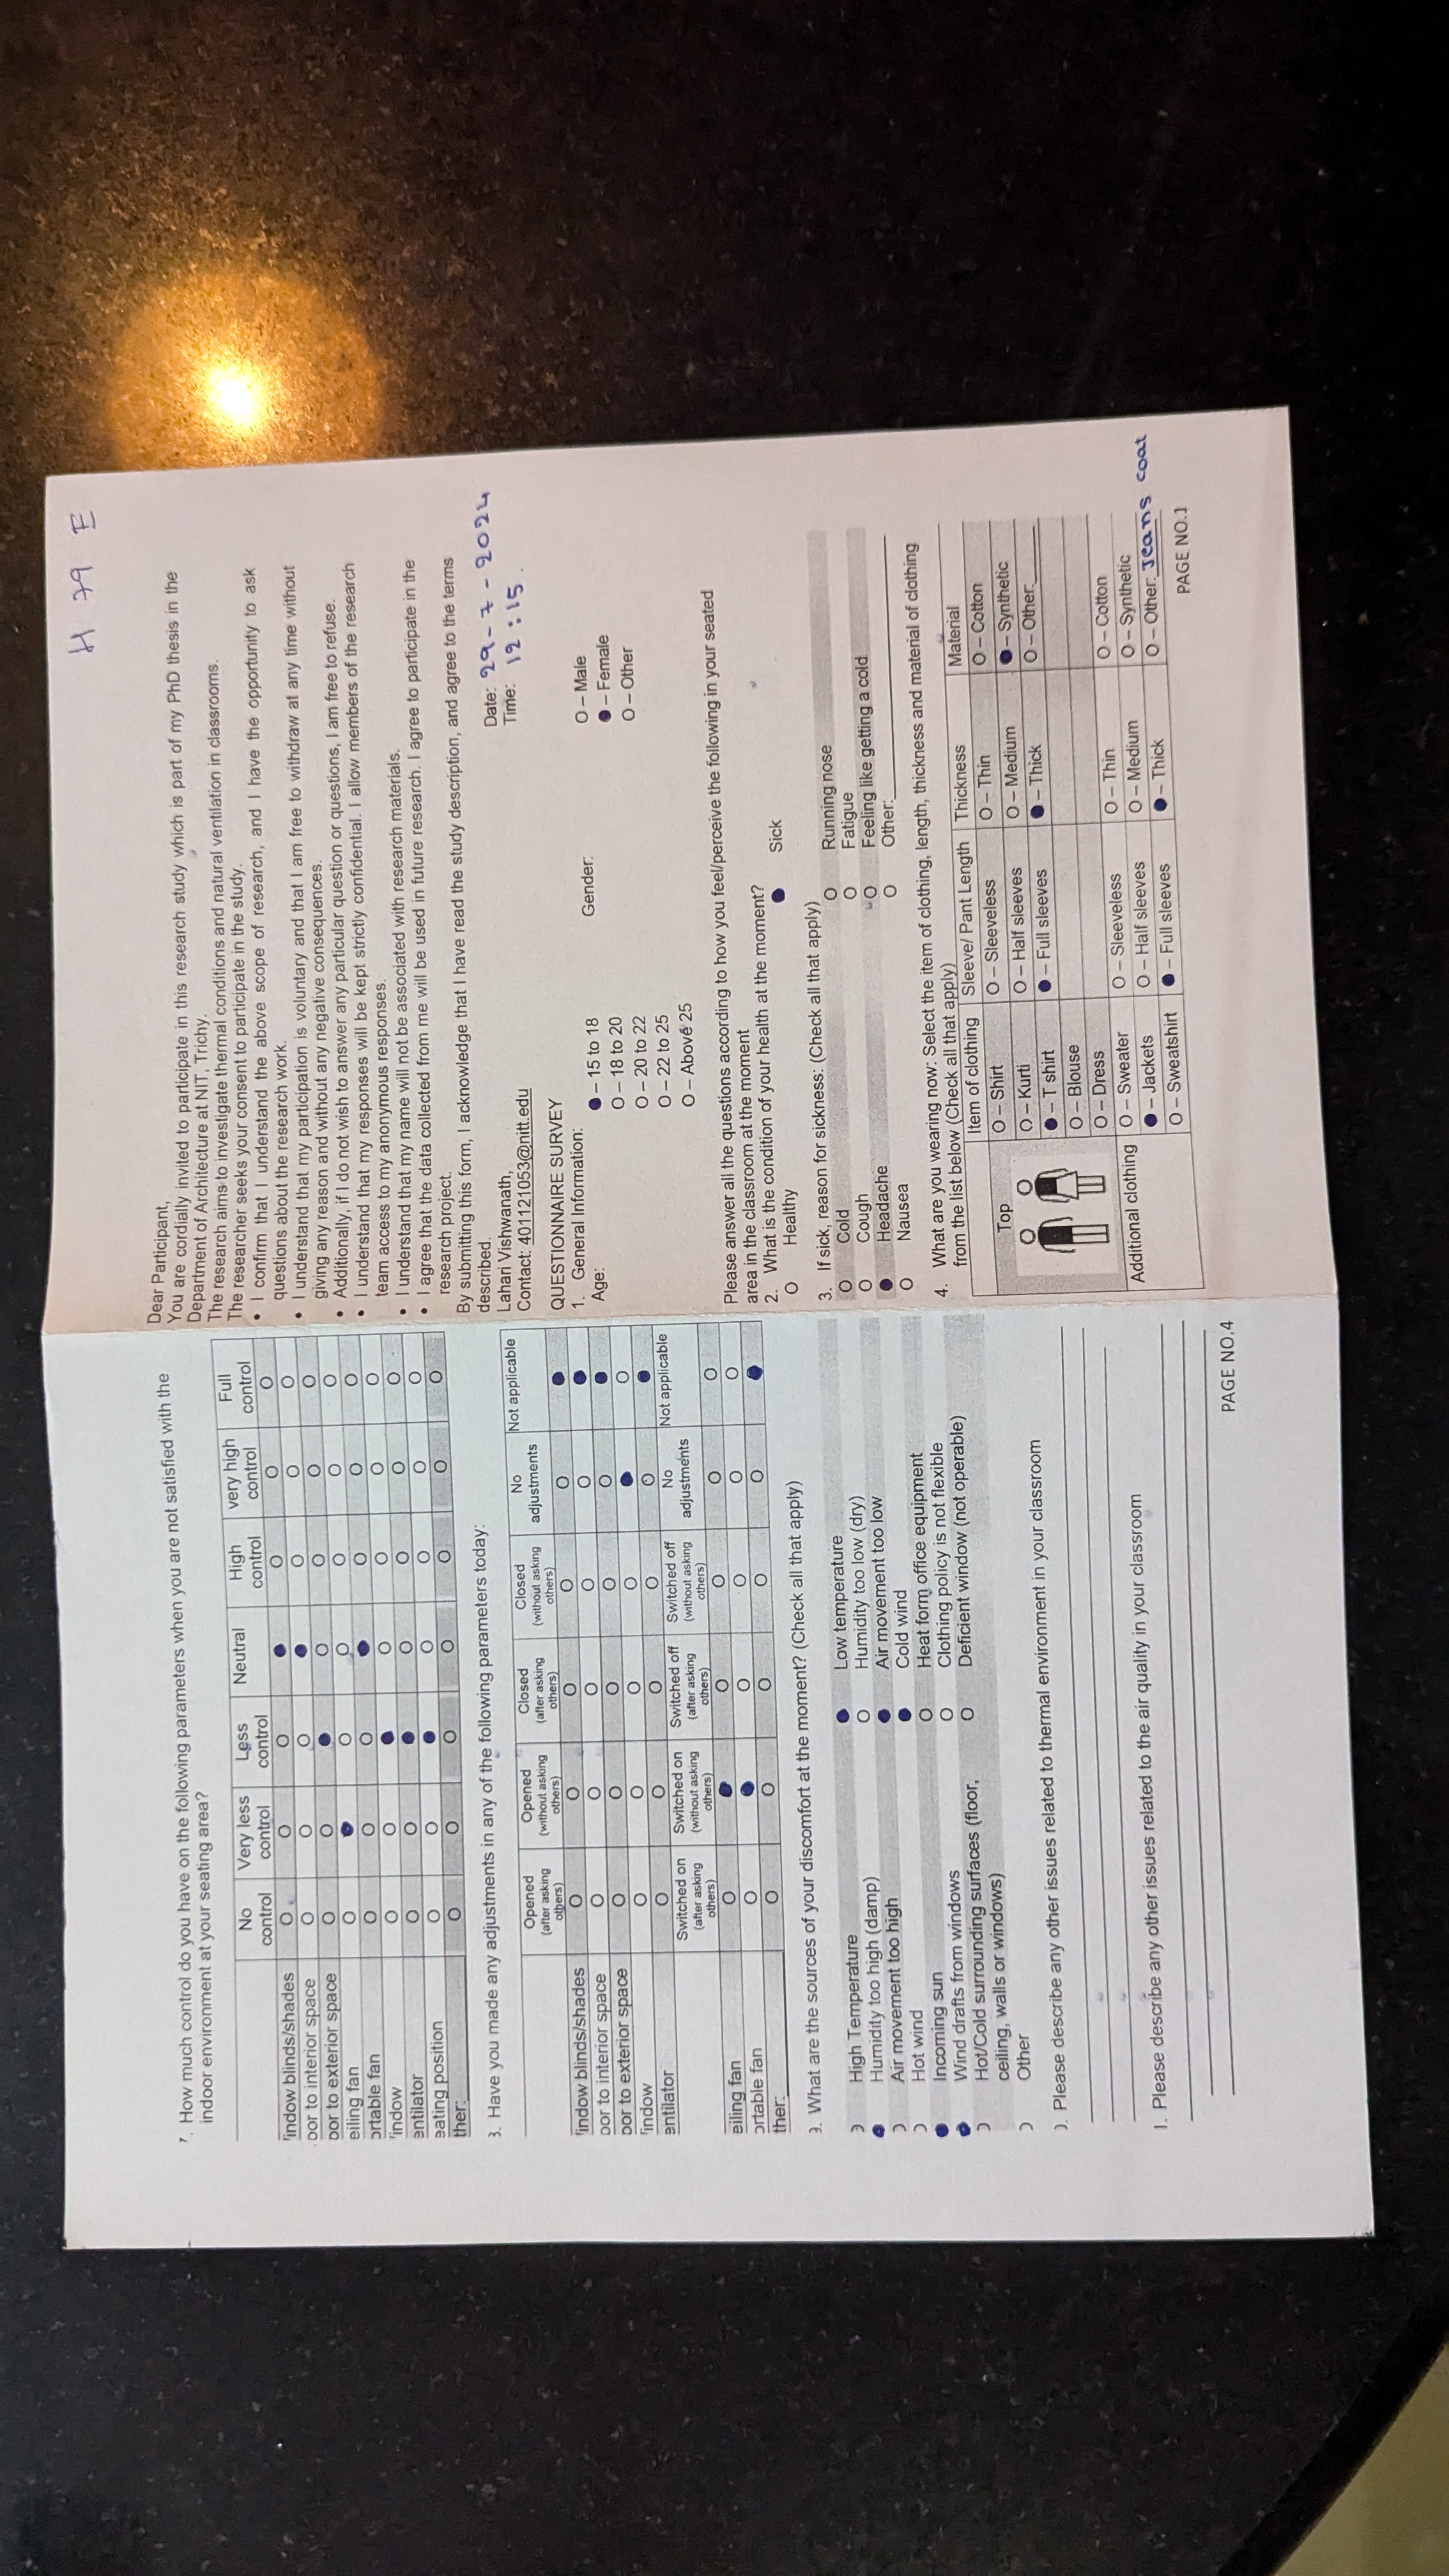 H 79 E
7. How much control do you have on the following parameters when you are not satisfied with the
indoor environment at your seating area?
No control Very less control Less control Neutral High control very high control Full control
indow blinds/shades O O O ● O O O
oor to interior space O O O ● O O O
oor to exterior space O O ● O O O O
eiling fan O ● O O O O O
ortable fan O O O ● O O O
indow O O ● O O O O
entilator O O ● O O O O
eating position O O ● O O O O
ther: O O O O O O O
3. Have you made any adjustments in any of the following parameters today:
Opened (after asking others) Opened (without asking others) Closed (after asking others) Closed (without asking others) No adjustments Not applicable
indow blinds/shades O O O O O ●
oor to interior space O O O O O ●
oor to exterior space O O O O O ●
indow O O O O ● O
entilator O O O O O ●
Switched on (after asking others) Switched on (without asking others) Switched off (after asking others) Switched off (without asking others) No adjustments Not applicable
eiling fan O ● O O O O
ortable fan O ● O O O O
ther: O O O O O ●
9. What are the sources of your discomfort at the moment? (Check all that apply)
O High Temperature ● Low temperature
● Humidity too high (damp) O Humidity too low (dry)
O Air movement too high ● Air movement too low
O Hot wind ● Cold wind
● Incoming sun O Heat form office equipment
● Wind drafts from windows O Clothing policy is not flexible
O Hot/Cold surrounding surfaces (floor, O Deficient window (not operable)
ceiling, walls or windows)
O Other
). Please describe any other issues related to thermal environment in your classroom
1. Please describe any other issues related to the air quality in your classroom
PAGE NO.4
Dear Participant,
You are cordially invited to participate in this research study which is part of my PhD thesis in the
Department of Architecture at NIT, Trichy.
The research aims to investigate thermal conditions and natural ventilation in classrooms.
The researcher seeks your consent to participate in the study.
• I confirm that I understand the above scope of research, and I have the opportunity to ask
questions about the research work.
• I understand that my participation is voluntary and that I am free to withdraw at any time without
giving any reason and without any negative consequences.
• Additionally, if I do not wish to answer any particular question or questions, I am free to refuse.
• I understand that my responses will be kept strictly confidential. I allow members of the research
team access to my anonymous responses.
• I understand that my name will not be associated with research materials.
• I agree that the data collected from me will be used in future research. I agree to participate in the
research project.
By submitting this form, I acknowledge that I have read the study description, and agree to the terms
described.
Lahari Vishwanath, Date: 29-7-2024
Contact: 401121053@nitt.edu Time: 12:15.
QUESTIONNAIRE SURVEY
1. General Information:
Age: ● – 15 to 18 Gender: O – Male
O – 18 to 20 ● – Female
O – 20 to 22 O – Other
O – 22 to 25
O – Above 25
Please answer all the questions according to how you feel/perceive the following in your seated
area in the classroom at the moment
2. What is the condition of your health at the moment?
O Healthy ● Sick
3. If sick, reason for sickness: (Check all that apply)
O Cold O Running nose
O Cough O Fatigue
● Headache O Feeling like getting a cold
O Nausea O Other:
4. What are you wearing now: Select the item of clothing, length, thickness and material of clothing
from the list below (Check all that apply)
Item of clothing Sleeve/ Pant Length Thickness Material
Top O – Shirt O – Sleeveless O – Thin O – Cotton
O – Kurti O – Half sleeves O – Medium ● – Synthetic
● – T shirt ● – Full sleeves ● – Thick O – Other:
O – Blouse
O – Dress
Additional clothing O – Sweater O – Sleeveless O – Thin O – Cotton
● – Jackets O – Half sleeves O – Medium O – Synthetic
O – Sweatshirt ● – Full sleeves ● – Thick O – Other: Jeans coat
PAGE NO.1